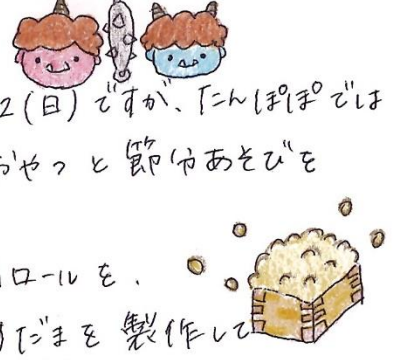 2(日)ですが、たんぽぽでは
おやつと節分あそびを
ロールを、
だまを製作して